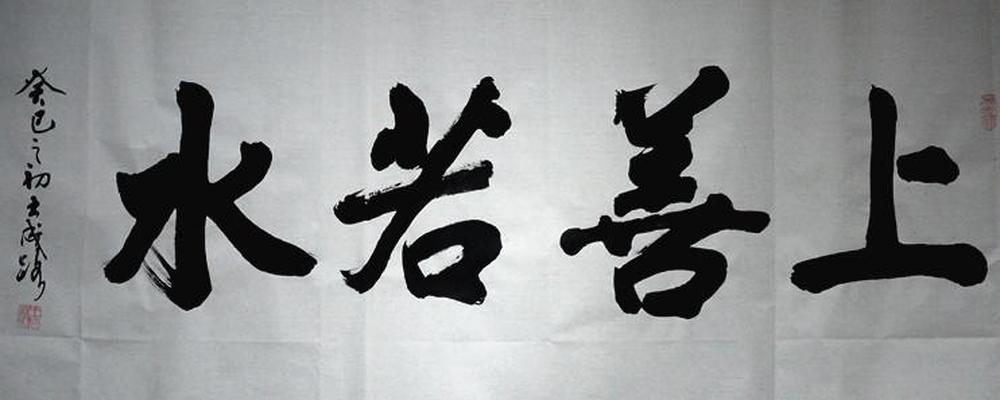 上善若水
癸巳之初